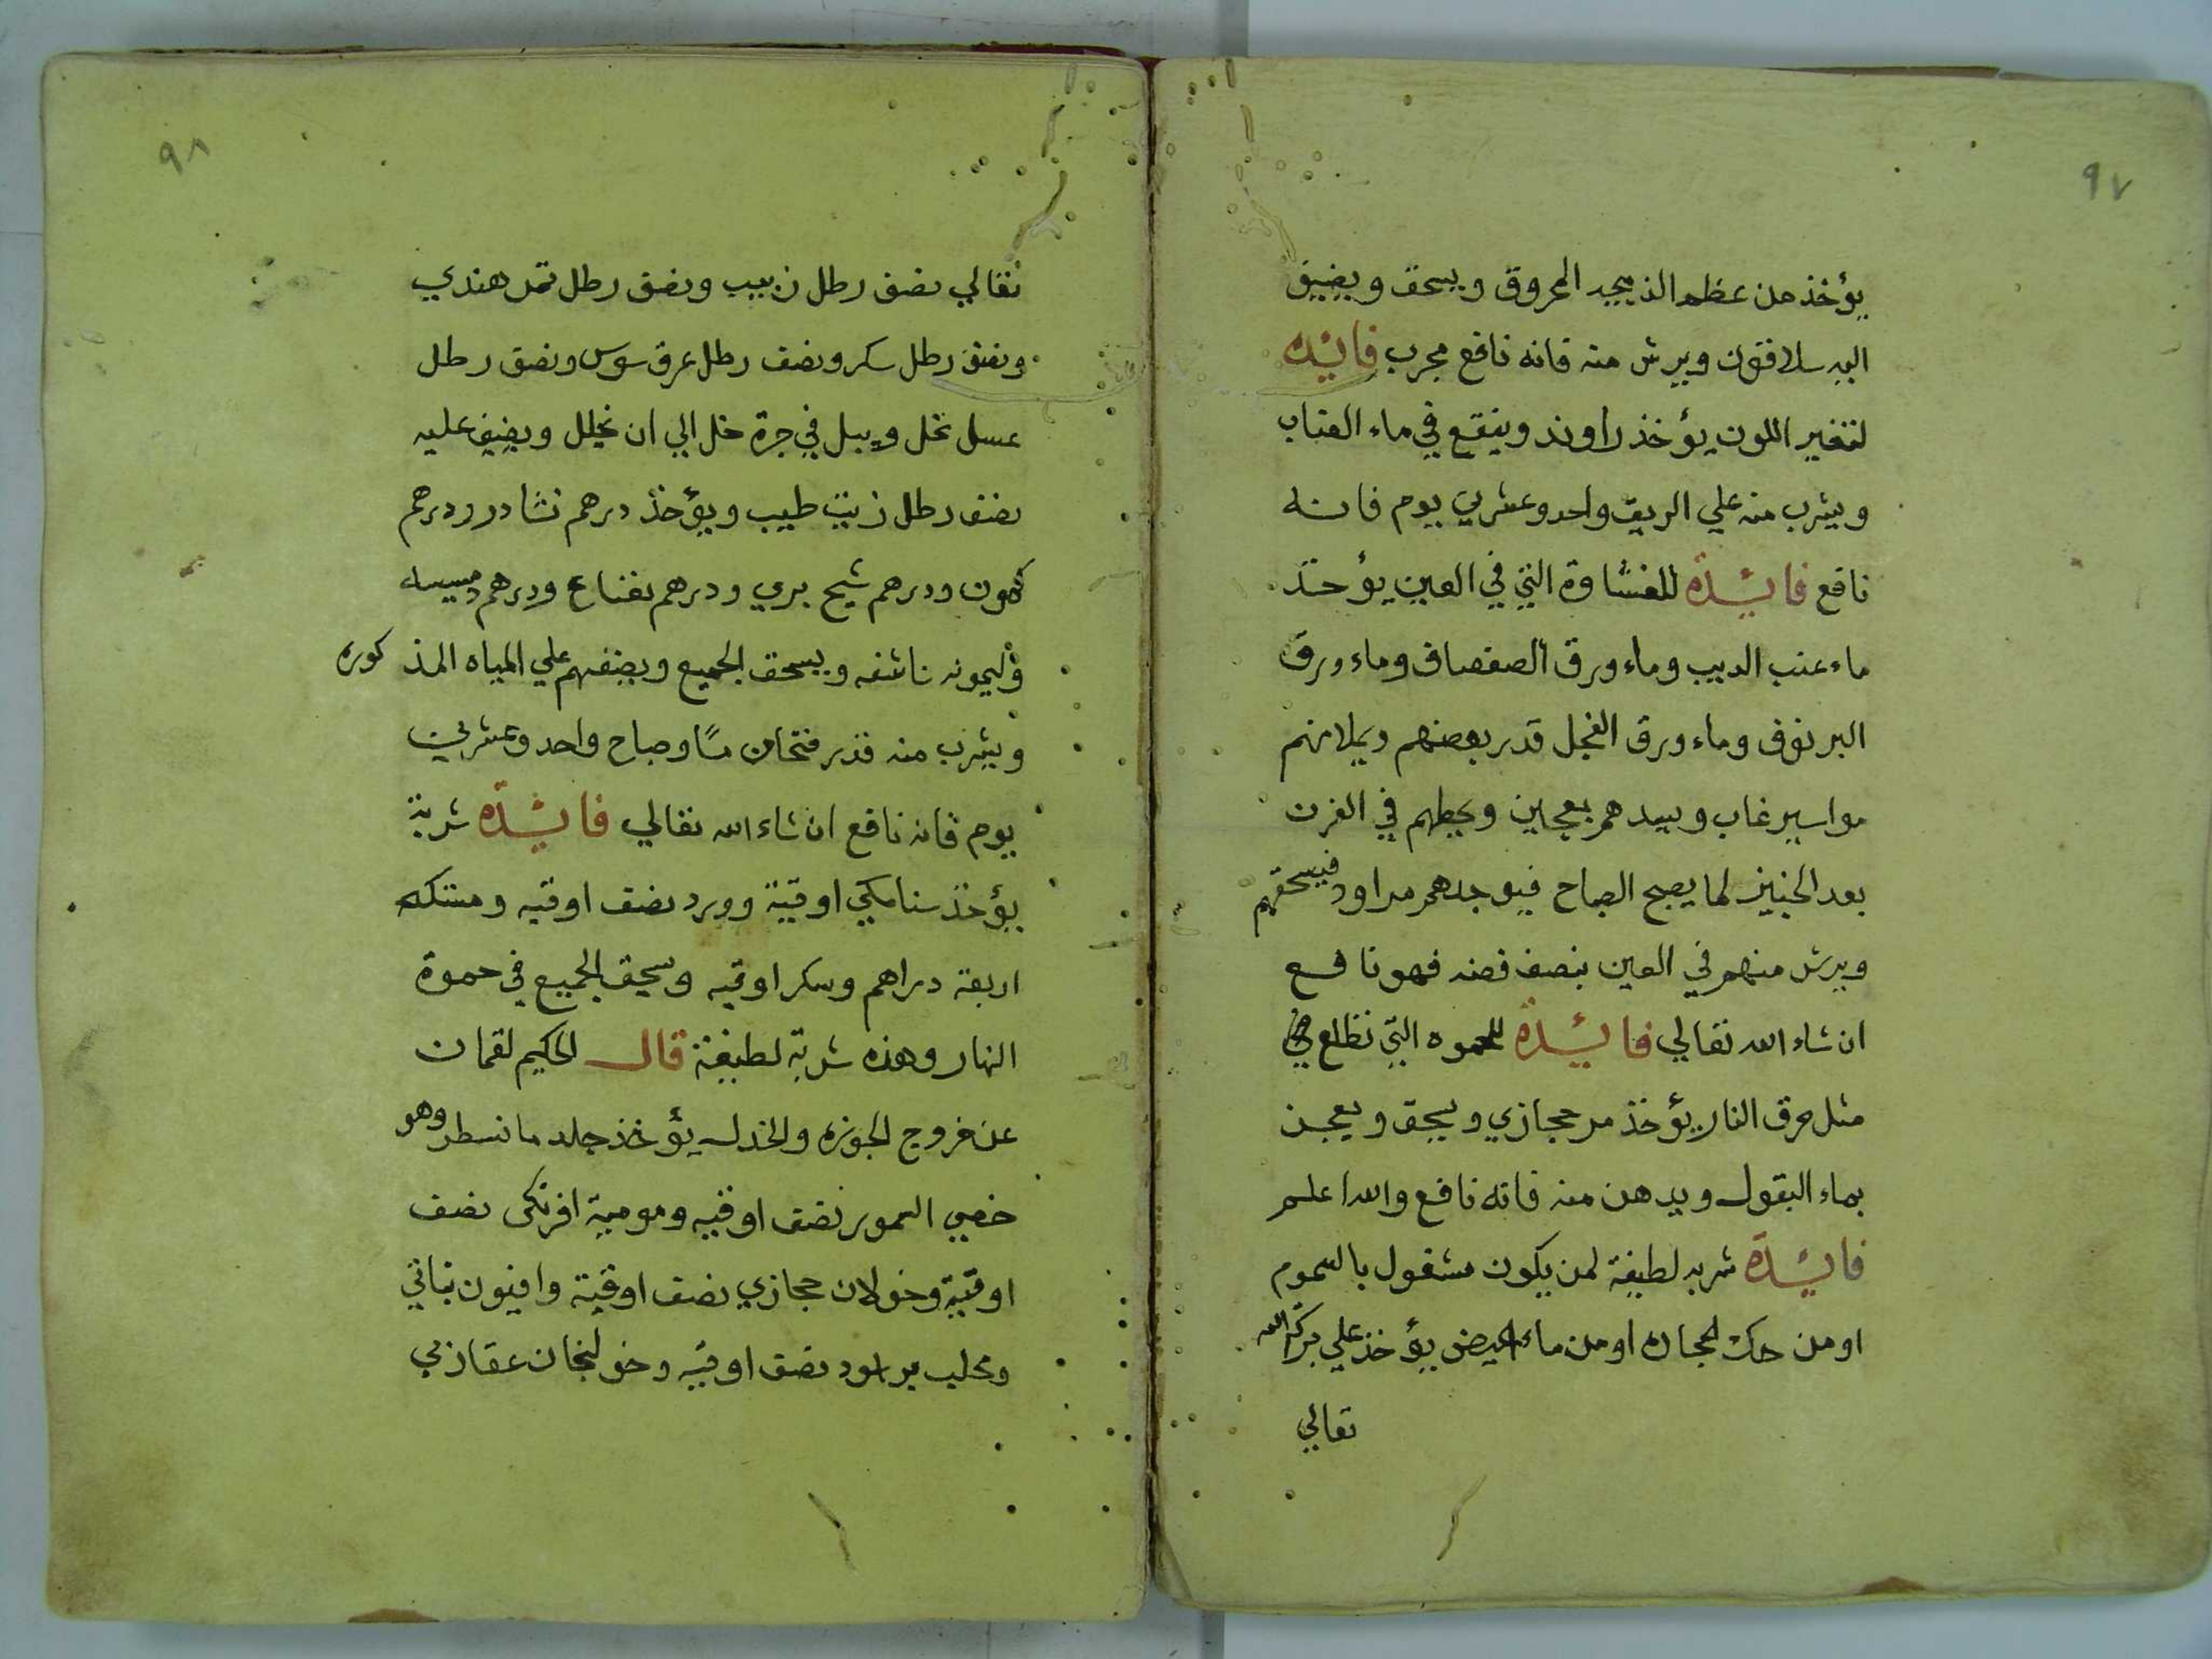 ٩٧
يؤخذ من عظم الذبيحه المحروق ويسحق ويضيف
اليه سلاقون ويرش منه فانه نافع مجرب فائدة
لتغير اللون يؤخذ راوند وينقع في ماء العناب
ويشرب منه علي الريق واحد وعشرين يوم فانه
نافع فائدة للغشاوة التي في العين يؤخذ
ماء عنب الديب وماء ورق الصفصاف وماء ورق
البرنوف وماء ورق الفجل قدر بعضهم ويملا منهم
مواسير غاب ويسدهم بعجين ويحطهم في الفرن
بعد الخبيز لما يصبح الصباح فيوجدهم مراود فيسحقهم
ويرش منهم في العين بنصف فضه فهو نافع
ان شاء الله تعالي فائدة للحموه التي تطلع
مثل حرق النار يؤخذ مر حجازي ويسحق ويعجن
بماء البقول ويدهن منه فانه نافع والله اعلم
فائدة شربه لطيفة لمن يكون مشغول بالسموم
او من حك الحجاره او من ماء الحيض يؤخذ علي بركة الله
تعالي
٩٨
تعالي نصف رطل زبيب ونصف رطل تمر هندي
ونصف رطل سكر ونصف رطل عرق سوس ونصف رطل
عسل نحل ويبل في جرة خل الي ان يخلل ويضيف عليه
نصف رطل زيت طيب ويؤخذ درهم نشادر ودرهم
كمون ودرهم شيح بري ودرهم نعناع ودرهم
وليمونه ناشفه ويسحق الجميع ويضفهم علي المياه المذكوره
ويشرب منه قدر فنجان مسا وصباح واحد وعشرين
يوم فانه نافع ان شاء الله تعالي فائدة شربة
يؤخذ سنامكي اوقية وورد نصف اوقيه ومستكه
اربعة دراهم وسكر اوقيه وسحق الجميع في حموة
النهار وهذه شربة لطيفة قال الحكيم لقمان
عن خروج الجوزه والخدل يؤخذ جلد ما نسطر وهو
خصي السمور نصف اوقيه وموميه افرنكى نصف
اوقية وخولان حجازي نصف اوقية وافيون نباتي
ومحلب نصف اوقيه وخولنجان عقاربي